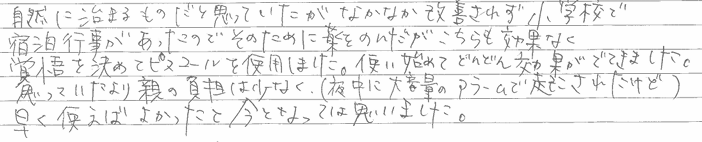 自然に治まるものだと思っていたがなかなか改善されず、小学校で
宿泊行事があったのでそのために薬をのんだがこちらも効果なく
覚悟を決めてピスコールを使用しました。使い始めてどんどん効果がでてきました。
思っていたより親の負担は少なく、(夜中に大音量のアラームで起こされたけど)
早く使えばよかったと今となっては思いました。